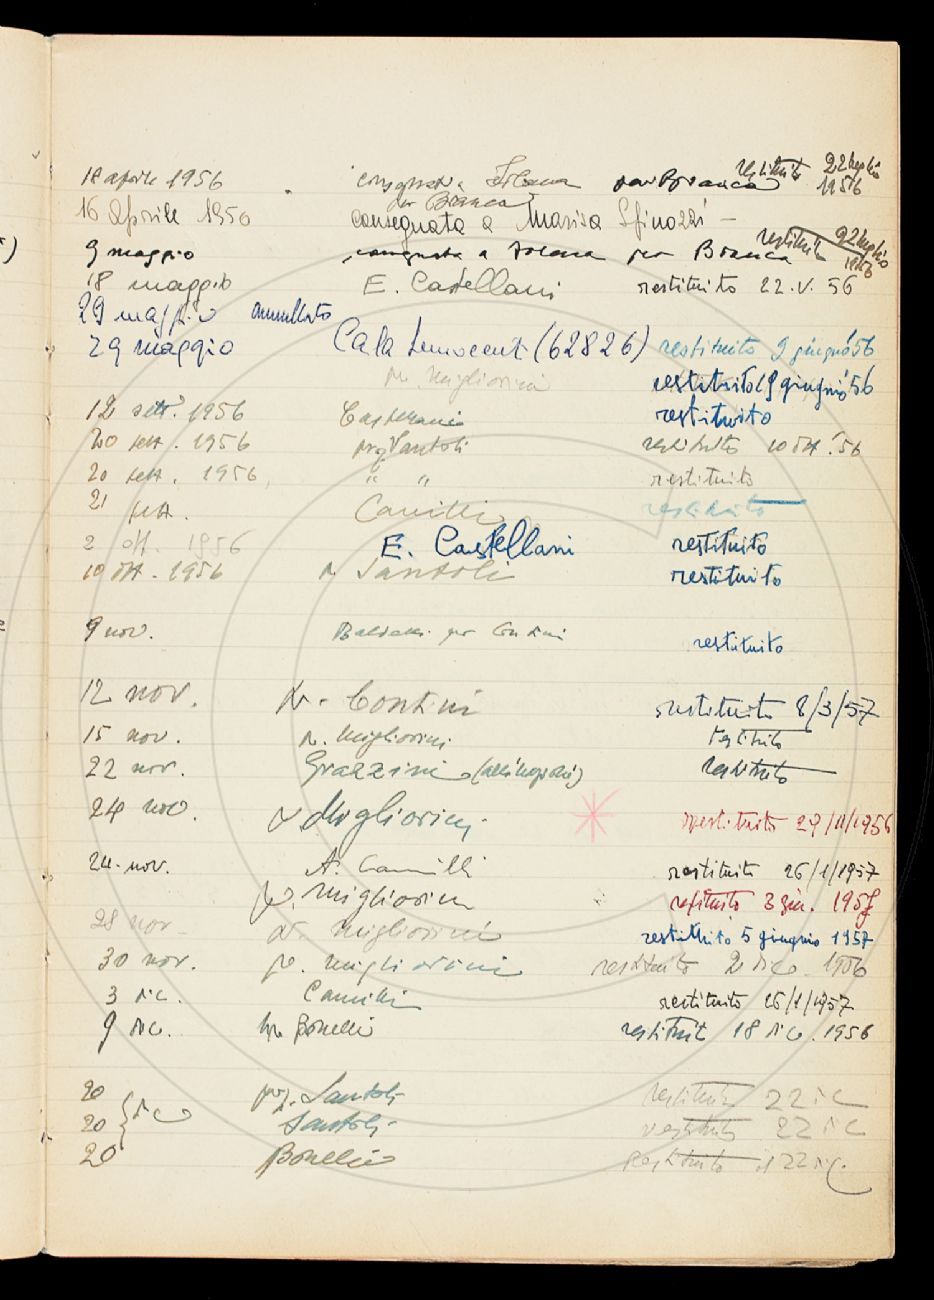 18 aprile 1956 consegnata a Iolana per Branca restituito 22 luglio 1956
per Branca
16 Aprile 1950 consegnata a Marisa Sfinozzi –
9 maggio consegnata a Iolana per Branca restituito 22 luglio 1956
18 maggio E. Castellani restituito 22.V.56
29 maggio annullato
29 maggio Cala Innocenti (62826) restituito 9 giugno '56
pr. Migliorini restituito 19 giugno '56
12 sett. 1956 Castellani restituito
20 sett. 1956 prof Santoli restituito 10 ott. '56
20 sett. 1956, " " restituito
21 sett. Camilli restituito
2 ott. 1956 E. Castellani restituito
10 ott. 1956 Santoli restituito
9 nov. per Contini restituito
12 nov. Contini restituito 8/3/57
15 nov. Migliorini restituito
22 nov. Grazzini restituito
24 nov. Migliorini restituito 29/11/1956
24. nov. A. Camilli restituito 26/1/1957
Migliorini restituito 3 giu. 1957
28 nov. Migliorini restituito 5 giugno 1957
30 nov. Migliorini restituito 2 dic. 1956
3 dic. Camilli restituito 26/1/1957
9 dic. Bonelli restituit 18 dic. 1956
20 dic prof. Santoli restituito 22 dic
20 Santoli restituito 22 dic
20 Bonelli restituito il 22 dic.